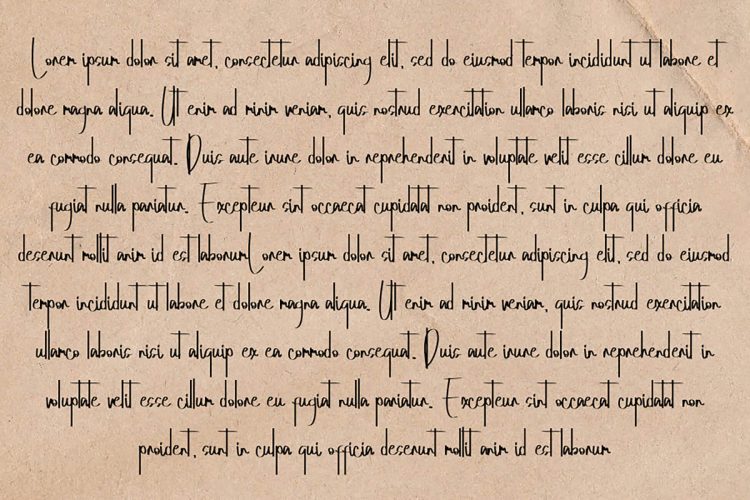 Lorem ipsum dolor sit amet, consectetur adipiscing elit, sed do eiusmod tempor incididunt ut labore et
dolore magna aliqua. Ut enim ad minim veniam, quis nostrud exercitation ullamco laboris nisi ut aliquip ex
ea commodo consequat. Duis aute irure dolor in reprehenderit in voluptate velit esse cillum dolore eu
fugiat nulla pariatur. Excepteur sint occaecat cupidatat non proident, sunt in culpa qui officia
deserunt mollit anim id est laborumLorem ipsum dolor sit amet, consectetur adipiscing elit, sed do eiusmod
tempor incididunt ut labore et dolore magna aliqua. Ut enim ad minim veniam, quis nostrud exercitation
ullamco laboris nisi ut aliquip ex ea commodo consequat. Duis aute irure dolor in reprehenderit in
voluptate velit esse cillum dolore eu fugiat nulla pariatur. Excepteur sint occaecat cupidatat non
proident, sunt in culpa qui officia deserunt mollit anim id est laborum